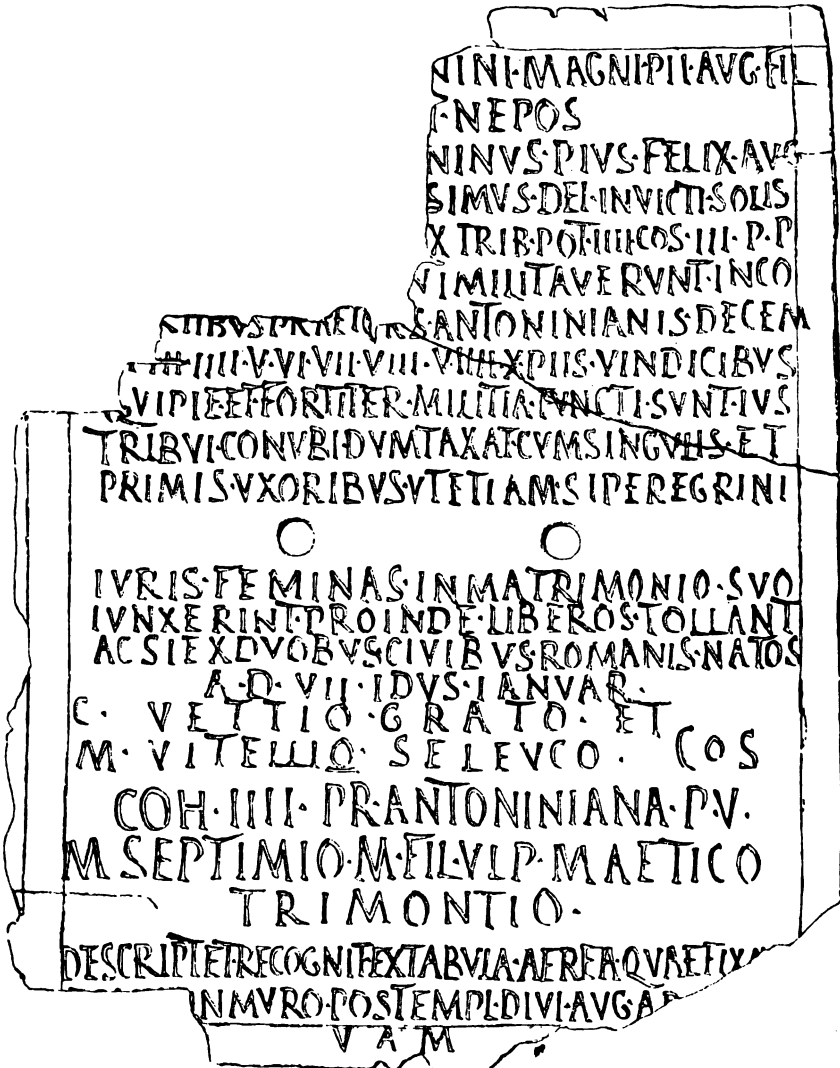 NINI·MAGNI·PII·AVG·FIL
·NEPOS
NINVS·PIVS·FELIX·AVG
SIMVS·DEI·INVICTI·SOLIS
X TRIB·POT·IIII·COS·III·P·P
VI MILITAVERVNT·IN CO
S·ANTONINIANIS·DECEM
IIII·V·VI·VII·VIII·VIIII·X PIIS·VINDICIBVS
VI PIE ET FORTITER·MILITIA·FVNCTI·SVNT·IVS
TRIBVI·CONVBI·DVMTAXAT·CVM SINGVLIS·ET
PRIMIS·VXORIBVS·VT ETIAM·SI PEREGRINI
IVRIS·FEMINAS·IN MATRIMONIO·SVO
IVNXERINT·PROINDE·LIBEROS·TOLLANT
AC SI EX DVOBVS CIVIBVS·ROMANIS·NATOS
A·D·VII·IDVS·IANVAR·
C· VETTIO·GRATO· ET
M· VITELLIO· SELEVCO· COS
COH·IIII·PR·ANTONINIANA·P·V·
M SEPTIMIO·M·FIL·VLP·MAETICO
TRIMONTIO·
DESCRIPT·ET·RECOGNIT·EX TABVLA·AEREA·QVAE FIXA
IN MVRO·POS TEMPL·DIVI·AVG·AD
VAM